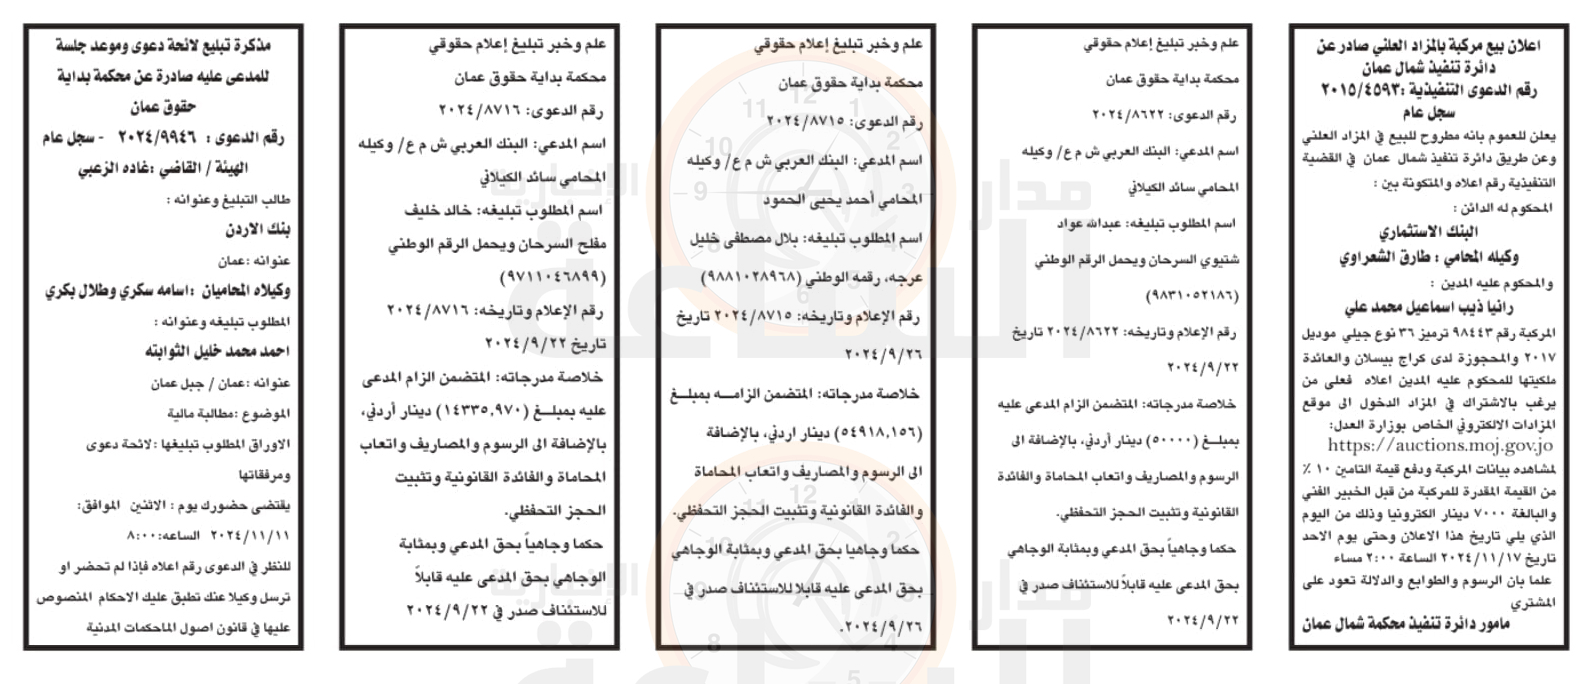 اعلان بيع مركبة بالمزاد العلني صادر عن
دائرة تنفيذ شمال عمان
رقم الدعوى التنفيذية :٢٠١٥/٤٥٩٣
سجل عام
يعلن للعموم بانه مطروح للبيع في المزاد العلني
وعن طريق دائرة تنفيذ شمال عمان في القضية
التنفيذية رقم اعلاه والمتكونة بين :
المحكوم له الدائن :
البنك الاستثماري
وكيله المحامي : طارق الشعراوي
والمحكوم عليه المدين :
رانيا ذيب اسماعيل محمد علي
المركبة رقم ٩٨٤٤٣ ترميز ٣٦ نوع جيلي موديل
٢٠١٧ والمحجوزة لدى كراج بيسان والعائدة
ملكيتها للمحكوم عليه المدين اعلاه فعلى من
يرغب بالاشتراك في المزاد الدخول الى موقع
المزادات الالكتروني الخاص بوزارة العدل:
https://auctions.moj.gov.jo
لمشاهده بيانات المركبة ودفع قيمة التامين ١٠ ٪
من القيمة المقدرة للمركبة من قبل الخبير الفني
والبالغة ٧٠٠٠ دينار الكترونيا وذلك من اليوم
الذي يلي تاريخ هذا الاعلان وحتى يوم الاحد
تاريخ ٢٠٢٤/١١/١٧ الساعة ٢:٠٠ مساء
علما بان الرسوم والطوابع والدلالة تعود على
المشتري
مامور دائرة تنفيذ محكمة شمال عمان
علم وخبر تبليغ إعلام حقوقي
محكمة بداية حقوق عمان
رقم الدعوى: ٢٠٢٤/٨٦٢٢
اسم المدعي: البنك العربي ش م ع/ وكيله
المحامي سائد الكيلاني
اسم المطلوب تبليغه: عبدالله عواد
شتيوي السرحان ويحمل الرقم الوطني
(٩٨٣١٠٥٢١٨٦)
رقم الإعلام وتاريخه: ٢٠٢٤/٨٦٢٢ تاريخ
٢٠٢٤/٩/٢٢
خلاصة مدرجاته: المتضمن الزام المدعى عليه
بمبلــغ (٥٠٠٠٠) دينار أردني، بالإضافة الى
الرسوم والمصاريف واتعاب المحاماة والفائدة
القانونية وتثبيت الحجز التحفظي.
حكما وجاهياً بحق المدعي وبمثابة الوجاهي
بحق المدعى عليه قابلاً للاستئناف صدر في
٢٠٢٤/٩/٢٢
علم وخبر تبليغ إعلام حقوقي
محكمة بداية حقوق عمان
رقم الدعوى: ٢٠٢٤/٨٧١٥
اسم المدعي: البنك العربي ش م ع/ وكيله
المحامي أحمد يحيى الحمود
اسم المطلوب تبليغه: بلال مصطفى خليل
عرجه، رقمه الوطني (٩٨٨١٠٢٨٩٦٨)
رقم الإعلام وتاريخه: ٢٠٢٤/٨٧١٥ تاريخ
٢٠٢٤/٩/٢٦
خلاصة مدرجاته: المتضمن الزامــه بمبلــغ
(٥٤٩١٨,١٥٦) دينار اردني، بالإضافة
الى الرسوم والمصاريف واتعاب المحاماة
والفائدة القانونية وتثبيت الحجز التحفظي.
حكما وجاهيا بحق المدعي وبمثابة الوجاهي
بحق المدعى عليه قابلا للاستئناف صدر في
٢٠٢٤/٩/٢٦.
علم وخبر تبليغ إعلام حقوقي
محكمة بداية حقوق عمان
رقم الدعوى: ٢٠٢٤/٨٧١٦
اسم المدعي: البنك العربي ش م ع/ وكيله
المحامي سائد الكيلاني
اسم المطلوب تبليغه: خالد خليف
مفلح السرحان ويحمل الرقم الوطني
(٩٧١١٠٤٦٨٩٩)
رقم الإعلام وتاريخه: ٢٠٢٤/٨٧١٦
تاريخ ٢٠٢٤/٩/٢٢
خلاصة مدرجاته: المتضمن الزام المدعى
عليه بمبلــغ (١٤٣٣٥,٩٧٠) دينار أردني،
بالإضافة الى الرسوم والمصاريف واتعاب
المحاماة والفائدة القانونية وتثبيت
الحجز التحفظي.
حكما وجاهياً بحق المدعي وبمثابة
الوجاهي بحق المدعى عليه قابلاً
للاستئناف صدر في ٢٠٢٤/٩/٢٢
مذكرة تبليغ لائحة دعوى وموعد جلسة
للمدعى عليه صادرة عن محكمة بداية
حقوق عمان
رقم الدعوى : ٢٠٢٤/٩٩٤٦ - سجل عام
الهيئة / القاضي :غاده الزعبي
طالب التبليغ وعنوانه :
بنك الاردن
عنوانه :عمان
وكيلاه المحاميان :اسامه سكري وطلال بكري
المطلوب تبليغه وعنوانه :
احمد محمد خليل الثوابته
عنوانه :عمان / جبل عمان
الموضوع :مطالبة مالية
الاوراق المطلوب تبليغها :لائحة دعوى
ومرفقاتها
يقتضي حضورك يوم : الاثنين الموافق:
٢٠٢٤/١١/١١ الساعه:٨:٠٠
للنظر في الدعوى رقم اعلاه فإذا لم تحضر او
ترسل وكيلا عنك تطبق عليك الاحكام المنصوص
عليها في قانون اصول الماحكمات المدنية
مدار الساعة الإخبارية